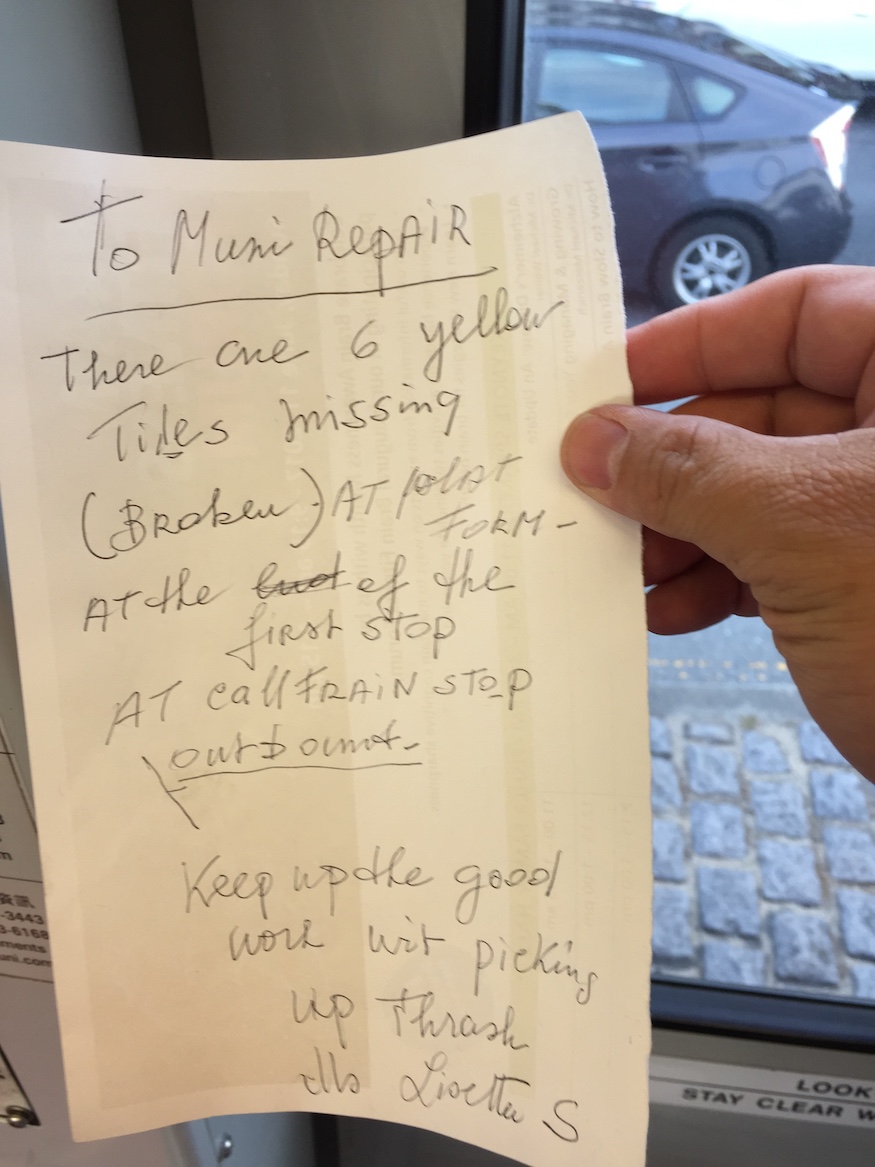 To Muni RepAiR
There are 6 yellow
Tiles missing
(Broken) AT plat
FORM-
AT the of the
first STOP
AT callTRAiN STOP
outbount-
Keep up the good
work wit picking
up Thrash
Lisette S
資訊
-3443
3-6168
ments
uni.com
LOOK
STAY CLEAR W